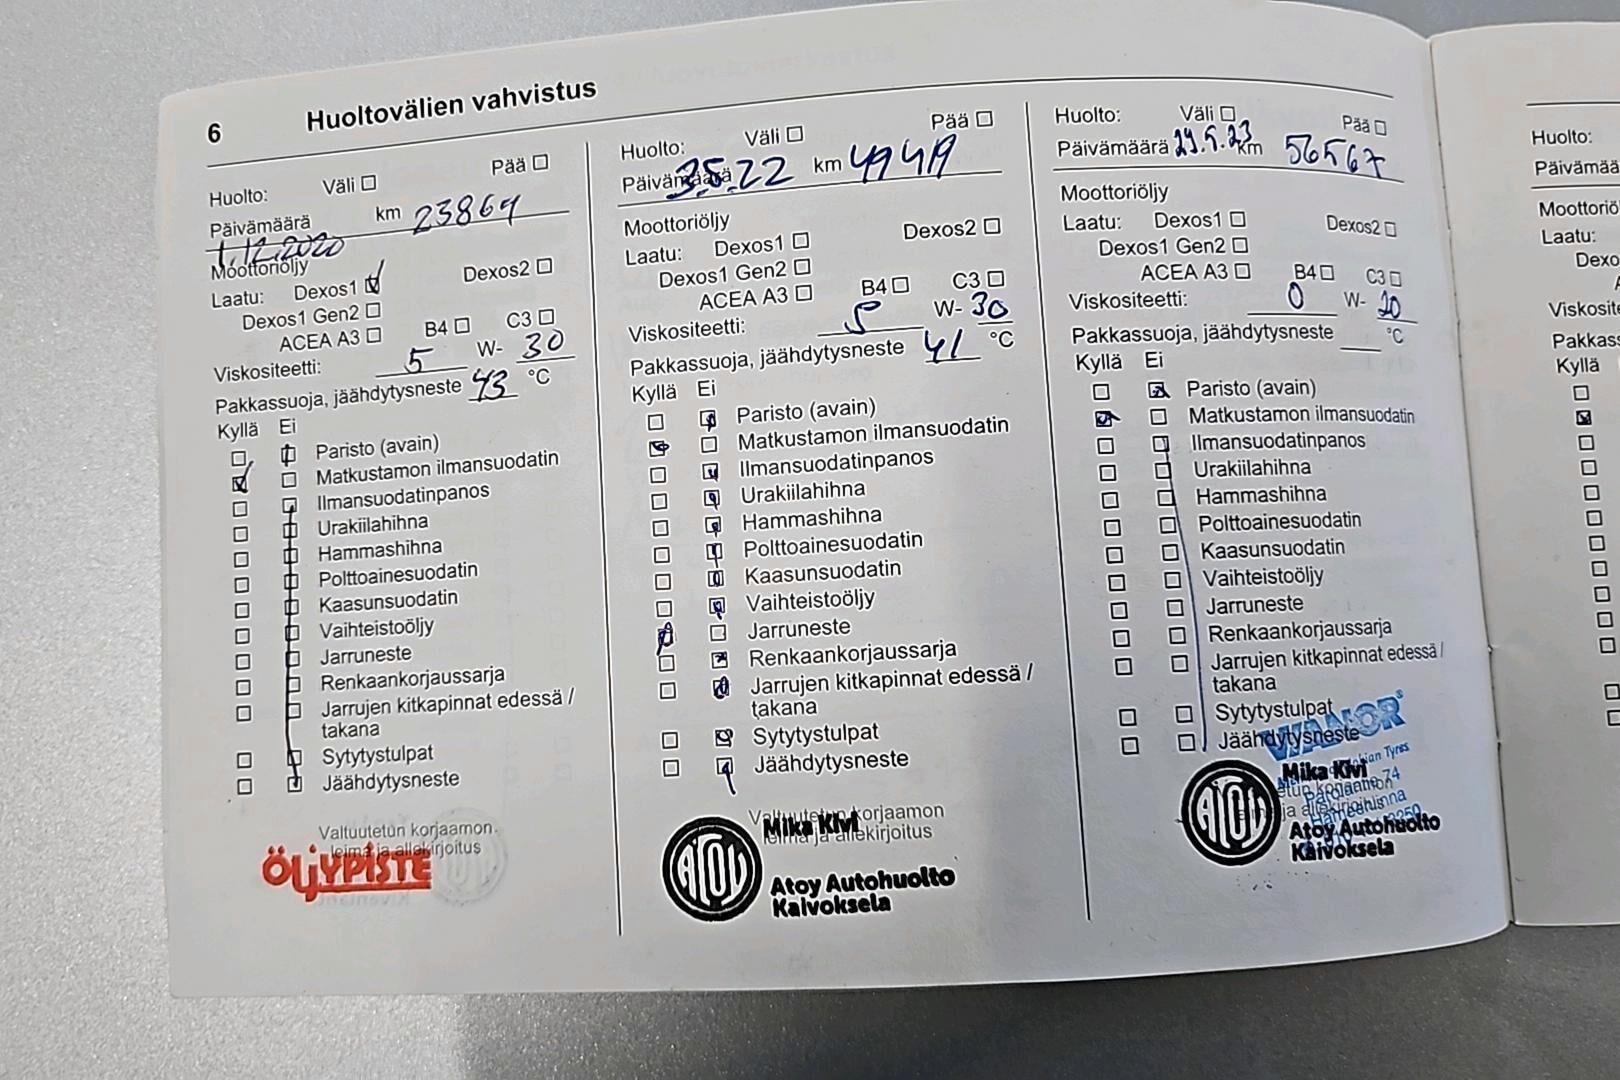 6 Huoltovälien vahvistus
Huolto: Väli Pää
Päivämäärä km 23864
1.12.2020
Moottoriöljy
Laatu: Dexos1 Dexos2
Dexos1 Gen2
ACEA A3 B4 C3
Viskositeetti: 5 W- 30
Pakkassuoja, jäähdytysneste 43 °C
Kyllä Ei
Paristo (avain)
Matkustamon ilmansuodatin
Ilmansuodatinpanos
Urakiilahihna
Hammashihna
Polttoainesuodatin
Kaasunsuodatin
Vaihteistoöljy
Jarruneste
Renkaankorjaussarja
Jarrujen kitkapinnat edessä /
takana
Sytytystulpat
Jäähdytysneste
Valtuutetun korjaamon
leima ja allekirjoitus
ÖLJYPISTE
Huolto: Väli Pää
Päivämäärä 3.5.22 km 49419
Moottoriöljy
Laatu: Dexos1 Dexos2
Dexos1 Gen2
ACEA A3 B4 C3
Viskositeetti: 5 W- 30
Pakkassuoja, jäähdytysneste 41 °C
Kyllä Ei
Paristo (avain)
Matkustamon ilmansuodatin
Ilmansuodatinpanos
Urakiilahihna
Hammashihna
Polttoainesuodatin
Kaasunsuodatin
Vaihteistoöljy
Jarruneste
Renkaankorjaussarja
Jarrujen kitkapinnat edessä /
takana
Sytytystulpat
Jäähdytysneste
Valtuutetun korjaamon
leima ja allekirjoitus
Mika Kivi
ATOY
Atoy Autohuolto
Kaivoksela
Huolto: Väli Pää
Päivämäärä km 56567
Moottoriöljy
Laatu: Dexos1 Dexos2
Dexos1 Gen2
ACEA A3 B4 C3
Viskositeetti: 0 W- 20
Pakkassuoja, jäähdytysneste °C
Kyllä Ei
Paristo (avain)
Matkustamon ilmansuodatin
Ilmansuodatinpanos
Urakiilahihna
Hammashihna
Polttoainesuodatin
Kaasunsuodatin
Vaihteistoöljy
Jarruneste
Renkaankorjaussarja
Jarrujen kitkapinnat edessä /
takana
Sytytystulpat
Jäähdytysneste
VIANOR
Tyres
Mika Kivi
ATOY
Atoy Autohuolto
Kaivoksela
Huolto:
Päivämää
Moottoriö
Laatu:
Dexo
Viskosite
Pakkass
Kyllä